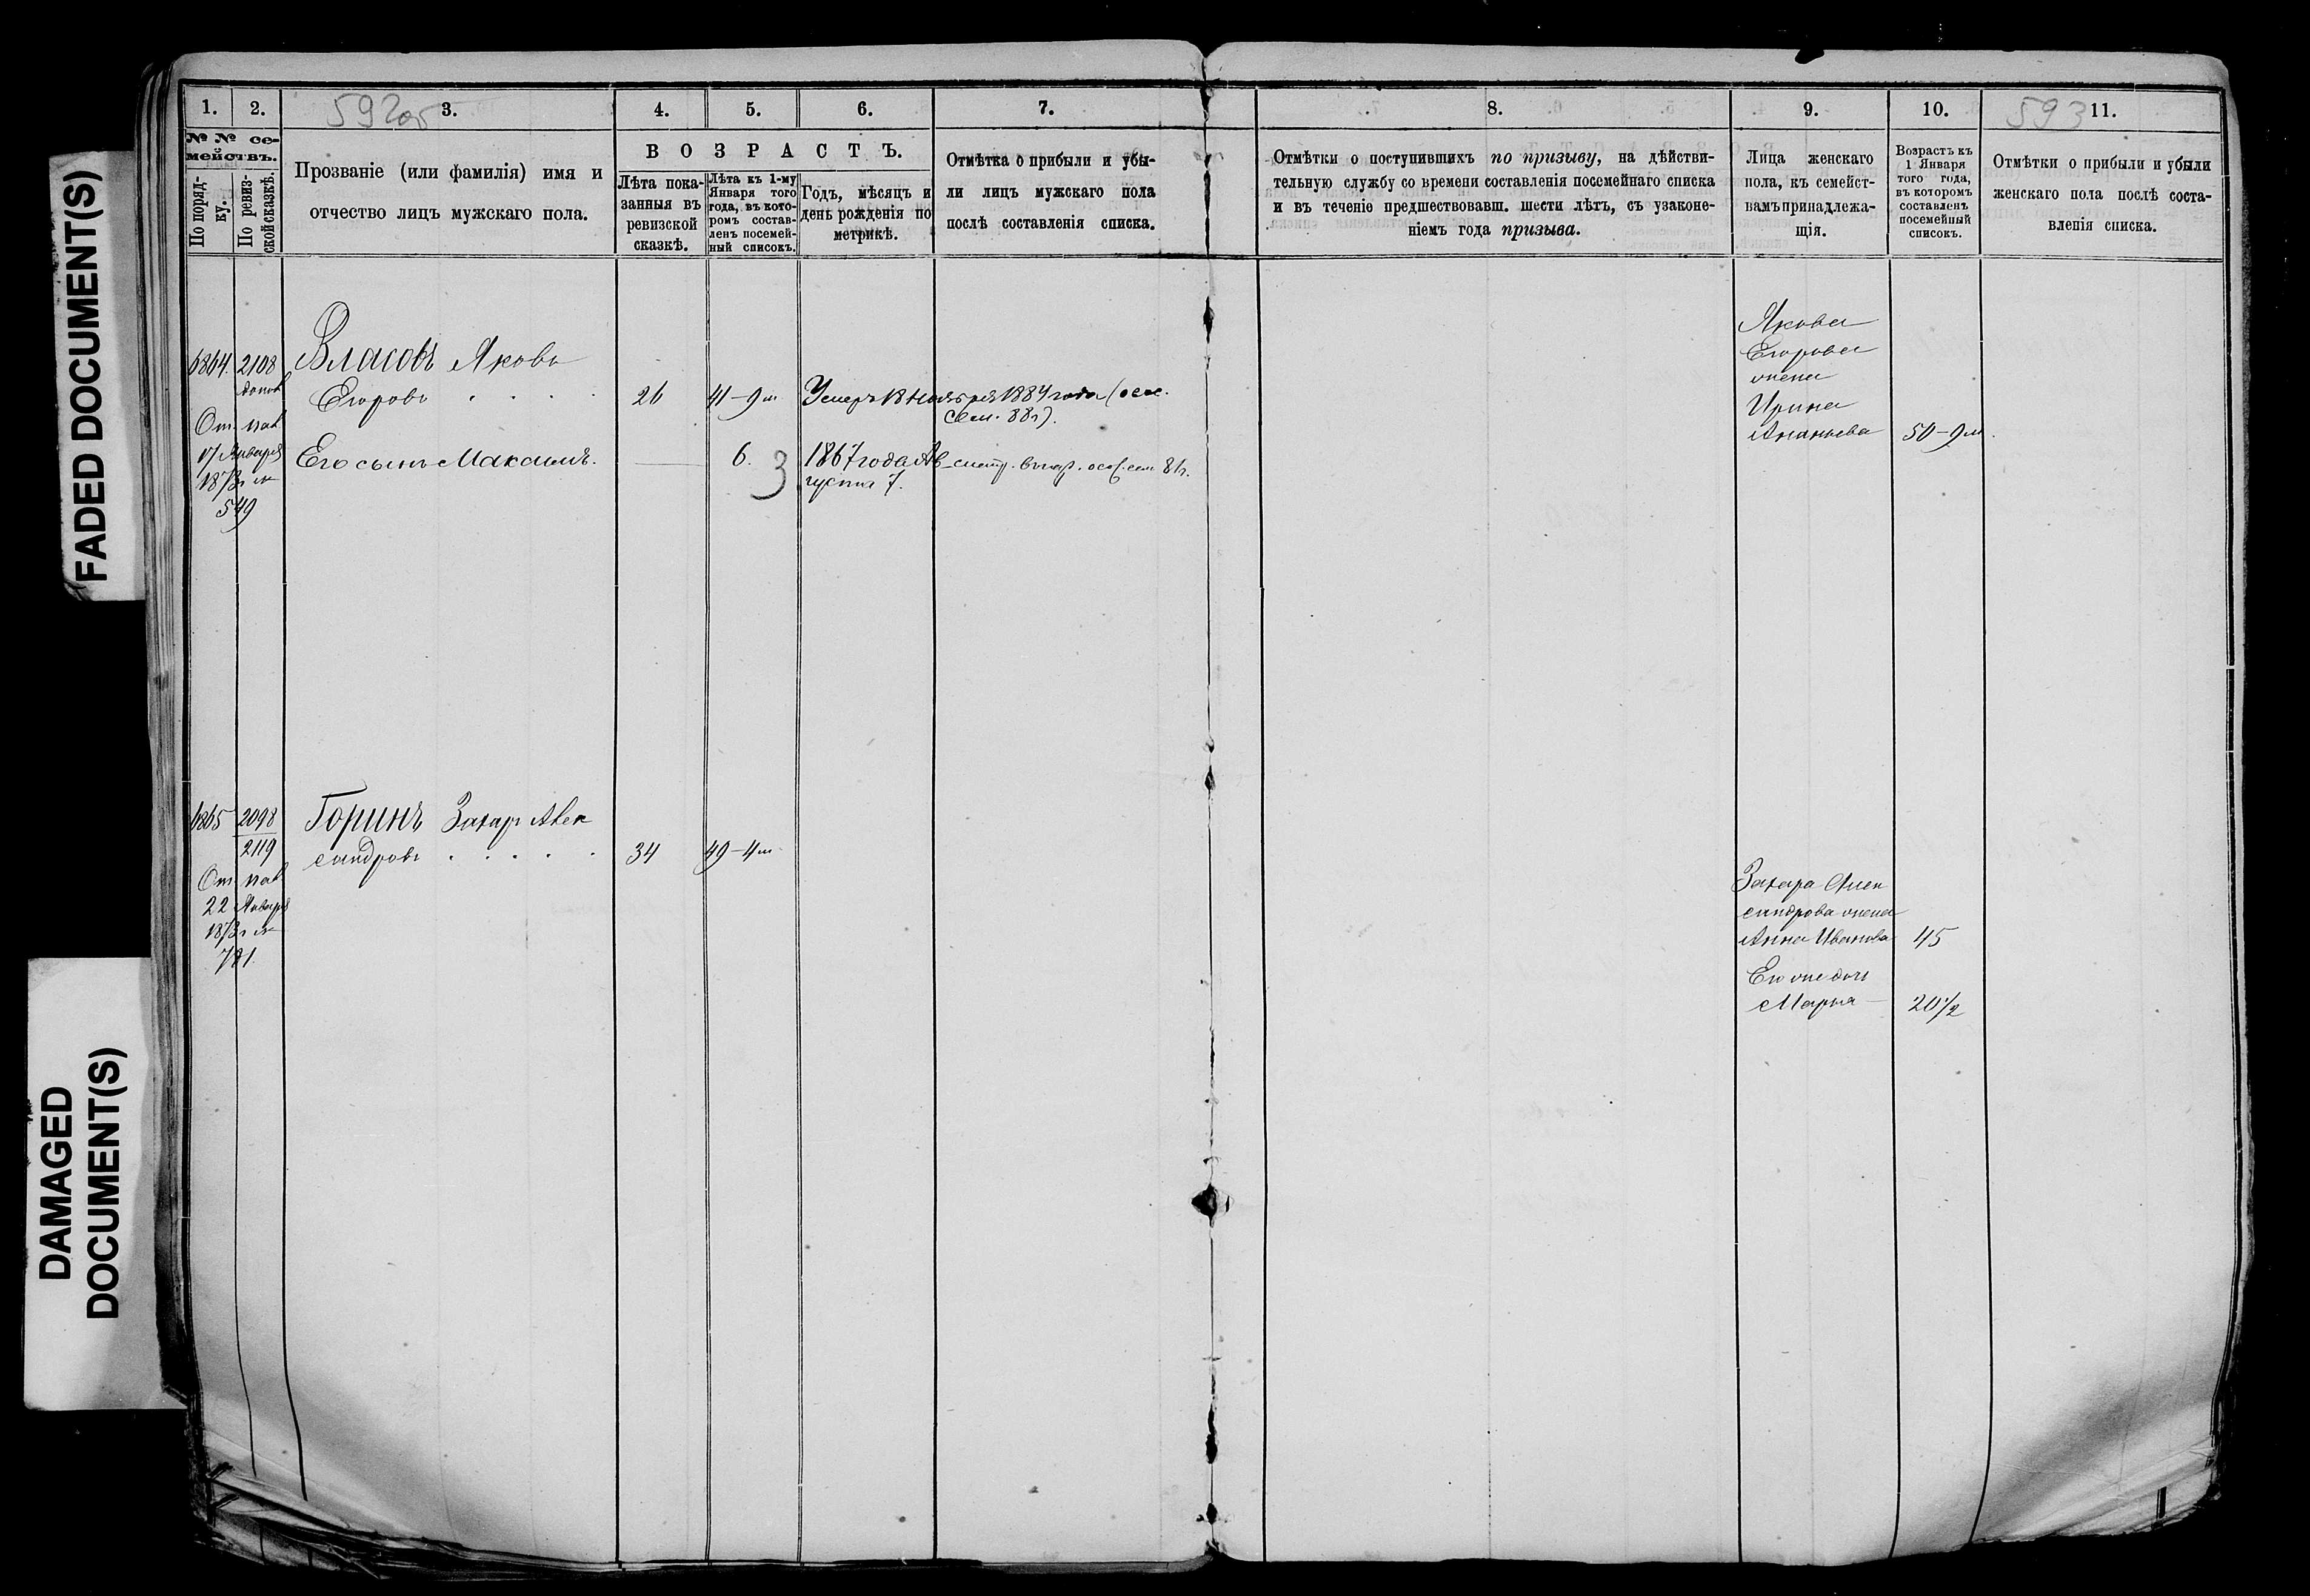 FADED DOCUMENT(S)
DAMAGED
DOCUMENT(S)
592об
593
1. 2. 3. 4. 5. 6. 7. 8. 9. 10. 11.
№ № се-
мействъ.
По поряд-
ку.
По ревиз-
ской сказкѣ.
Прозваніе (или фамилія) имя и
отчество лицъ мужскаго пола.
ВОЗРАСТЪ.
Лѣта пока-
занныя въ
ревизской
сказкѣ.
Лѣта къ 1-му
Января того
года, въ кото-
ромъ состав-
ленъ посемей-
ный списокъ.
Годъ, мѣсяцъ и
день рожденія по
метрикѣ.
Отмѣтка о прибыли и убы-
ли лицъ мужскаго пола
послѣ составленія списка.
Отмѣтки о поступившихъ по призыву, на дѣйстви-
тельную службу со времени составленія посемейнаго списка
и въ теченіе предшествовавш. шести лѣтъ, съ узаконе-
ніемъ года призыва.
Лица женскаго
пола, къ семейст-
вамъ принадлежа-
щія.
Возрастъ къ
1 Января
того года,
въ которомъ
составленъ
посемейный
списокъ.
Отмѣтки о прибыли и убыли
женскаго пола послѣ соста-
вленія списка.
6864. 2108
допол
От. пав
17 Января
1873 г №
549
Власовъ Яковъ
Егоровъ . . . . 26 41-9м Умеръ 18 Ноября 1884 года (осн.
сем. 88 г).
Его сынъ Максимъ. — 6. 3 1867 года Ав-
густа 7.
81 г.
Якова
Егорова
жена
Ирина
Ананьева 50-9м.
6865 2098
2119
От. пав
22 Января
1873 г №
781.
Горинъ Захаръ Алек
сандровъ . . . . . 34 49-4м.
Захара Алек
сандрова жена
Анна Иванова 45
Его же дочь
Марья — 20 1/2